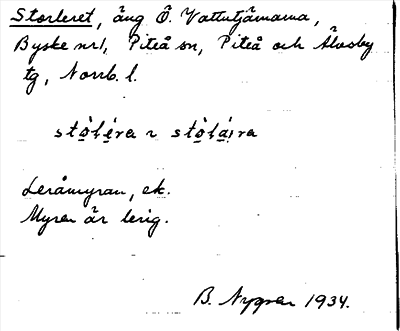 Storleret, äng Ö. Vattutjärnarna,
Byske nr 1, Piteå sn, Piteå och Älvsby
tg, Norrb. l.
stòléra ~ stòláira
Leråmyran, ek.
Myren är lerig.
B. Nygren 1934.